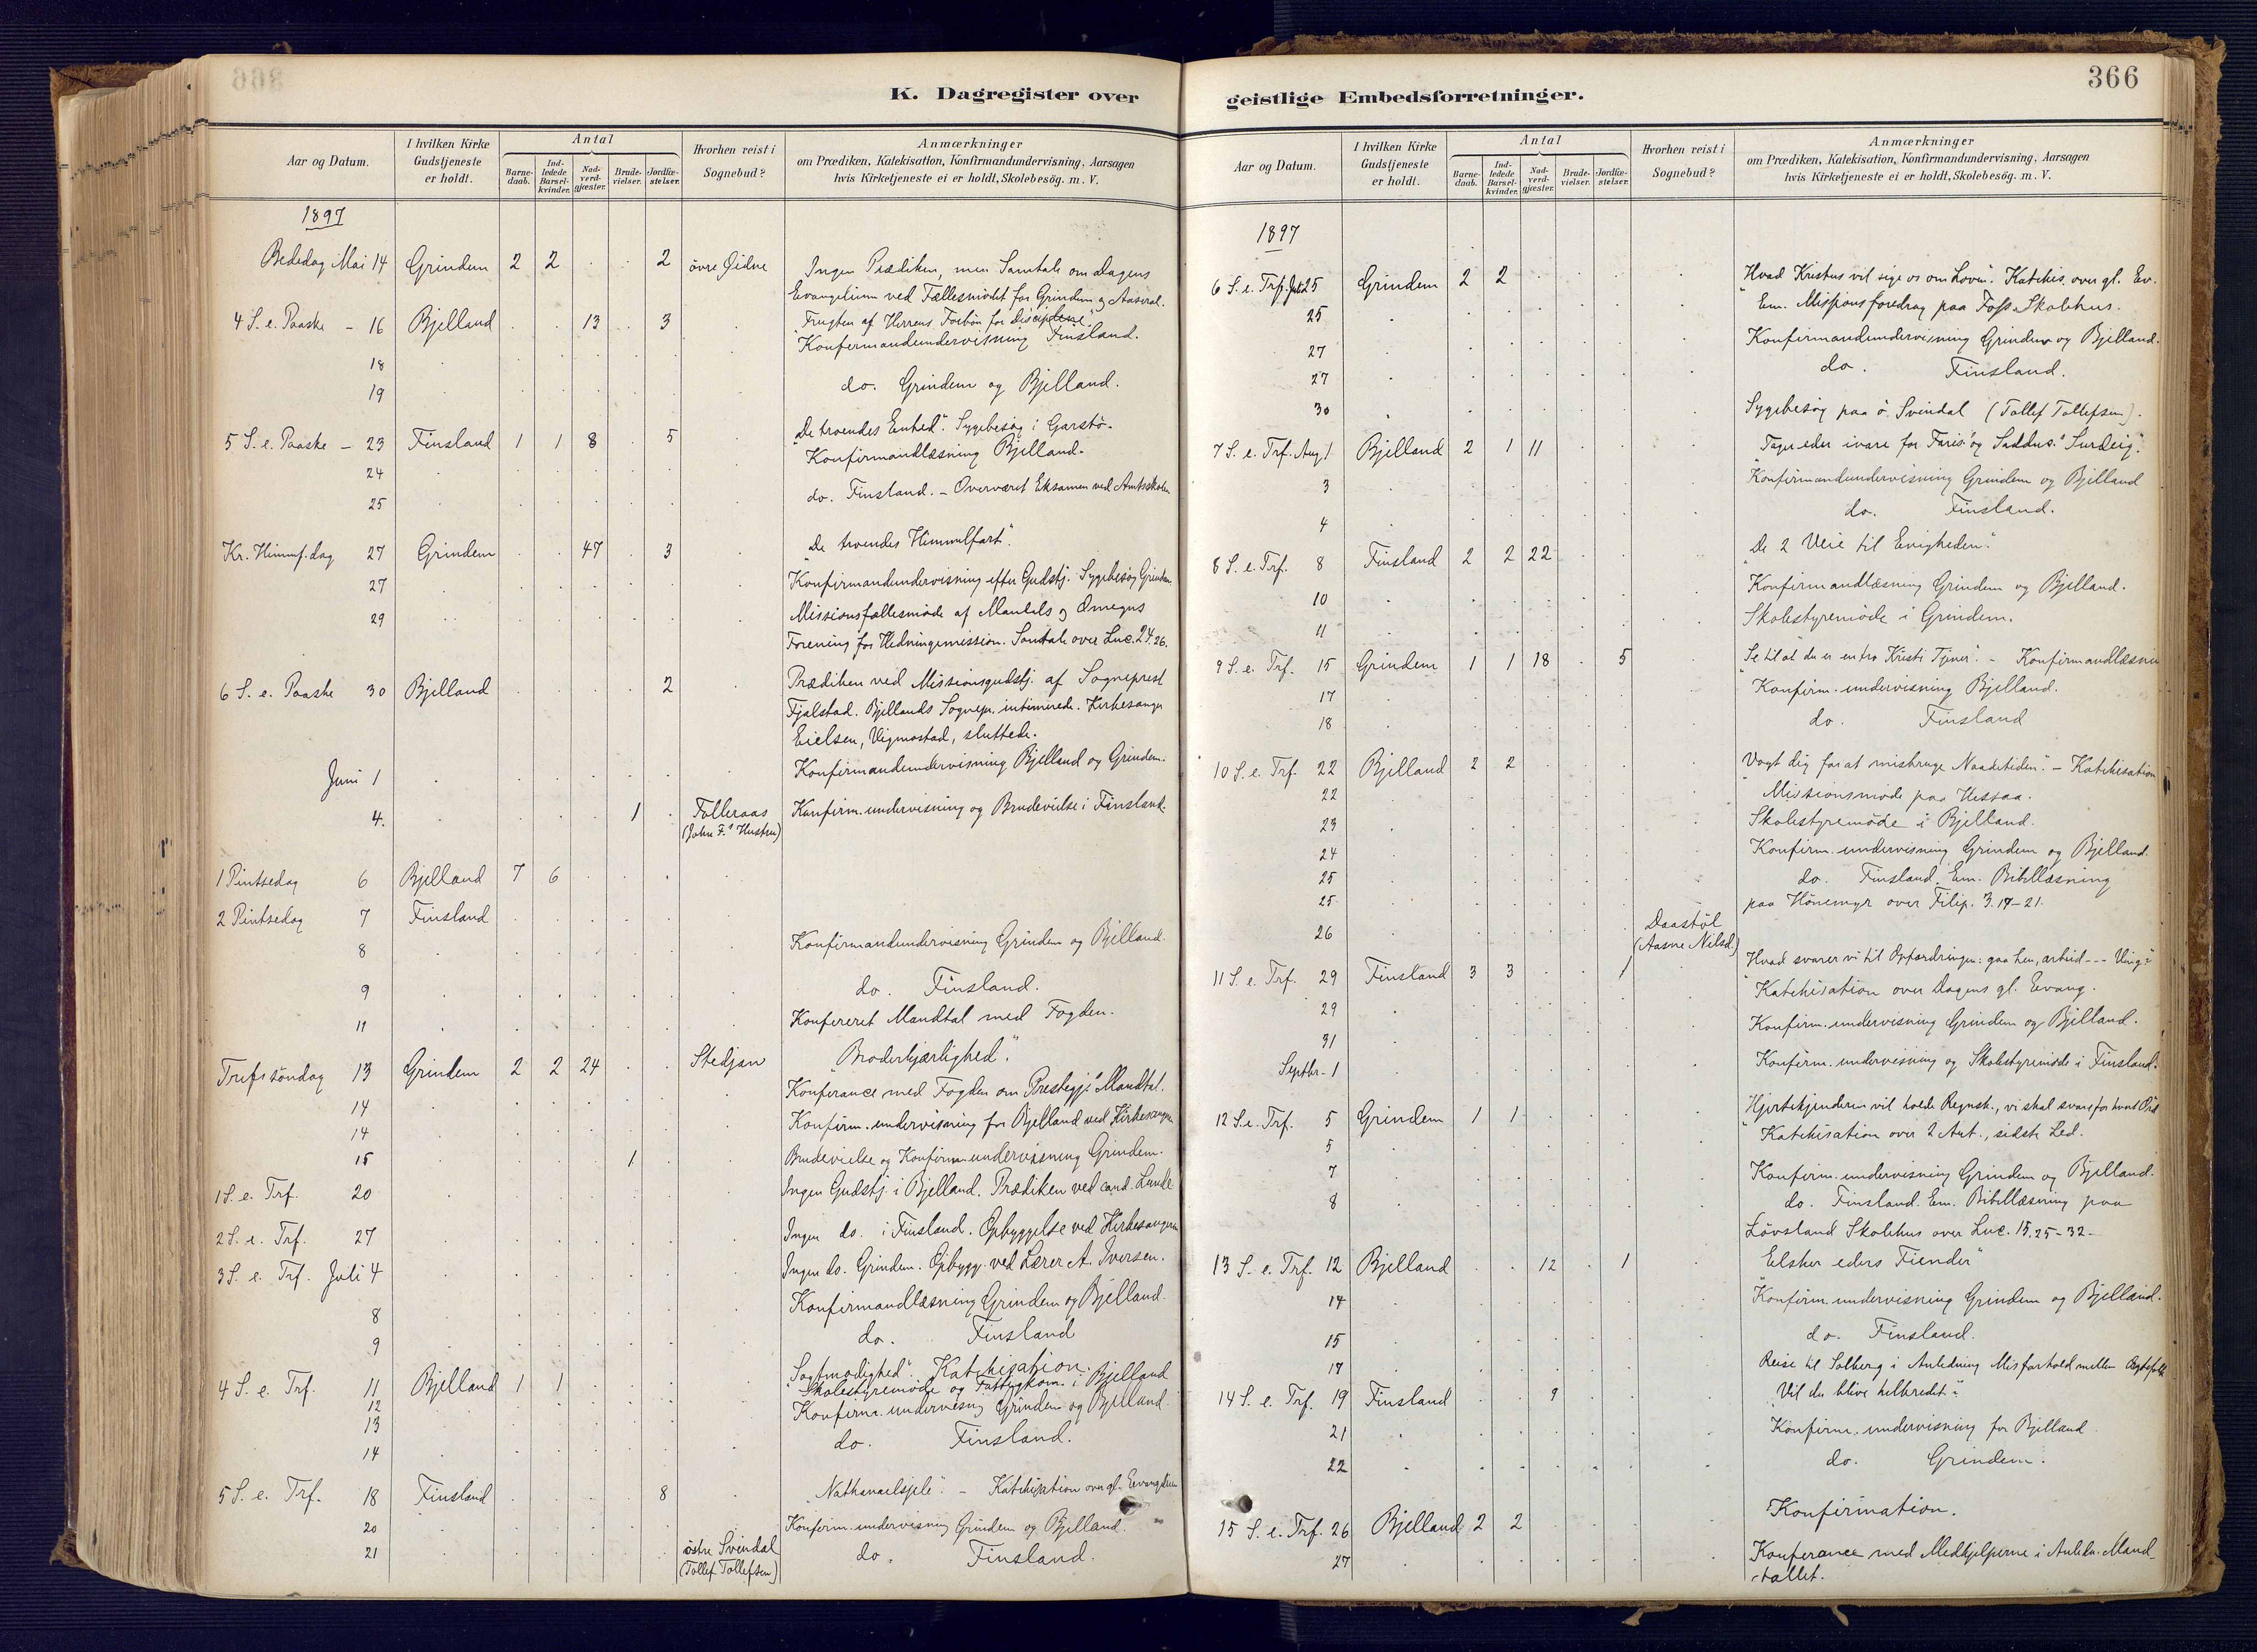 366
K. Dagregister over
Aar og Datum.
I hvilken Kirke Gudstjeneste er holdt.
Antal
Barnedaab.
Indledede Barselkvinder.
Nadverdgjæster.
Brudevielser.
Jordfæstelser.
Hvorhen reist i Sognebud?
Anmærkninger
om Prædiken, Katekisation, Konfirmandundervisning, Aarsagen
hvis Kirketjeneste ei er holdt, Skolebesög. m. V.
1897
Bededag Mai 14 Grindem 2 2 . . 2 øvre Øidne Ingen Prædiken, men Samtale om Dagens
Evangelium ved Fællesmödet for Grindem og Aaseral.
4 S. e. Paaske - 16 Bjelland . . 13 . 3 . "Frugten af Herrens Forbön for Disciplene".
Konfirmandundervisning Finsland.
18
19 do. Grindem og Bjelland.
5 S. e. Paaske - 23 Finsland 1 1 8 . 5 . "De troendes Enhed". Sygebesög i Garstö.
24 Konfirmandlæsning Bjelland.
25 do. Finsland. - Overværet Eksamen ved Amtsskolen
Kr. Himmf. dag 27 Grindem . . 47 . 3 . "De troendes Himmelfart".
27 Konfirmandundervisning efter Gudstj. Sygebesög Grindem.
29 Missionsfællesmöde af Mandals og Omegns
Forening for Hedningemission. Samtale over Luc. 24.26.
6 S. e. Paaske 30 Bjelland . . . . 2 . Prædiken ved Missionsgudstj. af Sogneprest
Fjalstad. Bjellands Sognepr. intimerede. Kirkesanger
Eielsen, Vigmostad, sluttede.
Juni 1 Konfirmandundervisning Bjelland og Grindem.
4. . . . . 1 . Folleraas Konfirm. undervisning og Brudevielse i Finsland.
(John F.s Hustru)
1 Pintsedag 6 Bjelland 7 6 . . .
2 Pintsedag 7 Finsland
8 Konfirmandundervisning Grindem og Bjelland.
9 do. Finsland.
11 Konfereret Mandtal med Fogden.
Trefs söndag 13 Grindem 2 2 24 . . Stedjan "Broderkjærlighed".
14 Konferance med Fogden om Prestegj. Mandtal.
14 Konfirm. undervisning for Bjelland ved Kirkesanger
15 . . . . 1 Brudevielse og Konfirm. undervisning Grindem.
1 S. e. Trf. 20 Ingen Gudstj. i Bjelland. Prædiken ved cand. Lunde
2 S. e. Trf. 27 Ingen do. i Finsland. Opbyggelse ved Kirkesangeren
3 S. e. Trf. Juli 4 Ingen do. Grindem. Opbygg. ved Lærer A. Iversen.
8 Konfirmandlæsning Grindem og Bjelland.
9 do. Finsland
4 S. e. Trf. 11 Bjelland 1 1 . . . "Sagtmodighed". Katekisation.
12 Skolestyremöde og Fattigkom. i Bjelland
13 Konfirm. undervisng Grindem og Bjelland.
14 do. Finsland.
5 S. e. Trf. 18 Finsland . . . . 8 . "Nathanaelsjele". - Katekisation over gl. Evangelium
20 Konfirm. undervisning Grindem og Bjelland.
21 østre Svindal do. Finsland.
(Tollef Tollefsen)
366
geistlige Embedsforretninger.
Aar og Datum.
I hvilken Kirke Gudstjeneste er holdt.
Antal
Barnedaab.
Indledede Barselkvinder.
Nadverdgjæster.
Brudevielser.
Jordfæstelser.
Hvorhen reist i Sognebud?
Anmærkninger
om Prædiken, Katekisation, Konfirmandundervisning, Aarsagen
hvis Kirketjeneste ei er holdt, Skolebesög. m. V.
1897
6 S. e. Trf. Juli 25 Grindem 2 2 . . . . "Hvad Kristus vil sige os om Loven". Katekis. over gl. Ev.
25 Em. Missionsforedrag paa Foss Skolehus.
27 Konfirmandundervisning Grindem og Bjelland.
27 do. Finsland.
30 Sygebesög paa ö. Svindal (Tollef Tollefsen).
7 S. e. Trf. Aug 1 Bjelland 2 1 11 "Tager eder ivare for Faris. og Saddus. Surdeig".
3 Konfirmandundervisning Grindem og Bjelland
4 do. Finsland.
8 S. e. Trf. 8 Finsland 2 2 22 "De 2 Veie til Evigheden".
10 Konfirmandlæsning Grindem og Bjelland.
11 Skolestyremöde i Grindem.
9 S. e. Trf. 15 Grindem 1 1 18 . 5 "Se til at du er en tro Kristi Tjener". - Konfirmandlæsning
17 Konfirm. undervisning Bjelland.
18 do. Finsland
10 S. e. Trf. 22 Bjelland 2 2 "Vogt dig for at misbruge Naadetiden". - Katekisation
22 Missionsmöde paa Hessaa.
23 Skolestyremöde i Bjelland.
24 Konfirm. undervisning Grindem og Bjelland.
25 do. Finsland. Em. Bibellæsning
25 paa Hönemyr over Filip. 3.17-21.
26 Daastöl
(Aasne Nilsd.)
11 S. e. Trf. 29 Finsland 3 3 . . 1 "Hvad svarer vi til Opfordringen: gaa hen, arbeid --- Ving."
29 Katekisation over Dagens gl. Evang.
31 Konfirm. undervisning Grindem og Bjelland.
Septbr. 1 Konfirm. undervisning og Skolestyremöde i Finsland.
12 S. e. Trf. 5 Grindem 1 1 "Hjertekjenderen vil holde Regnsk., vi skal svare for hvert Ord
5 Katekisation over 2 Art., sidste Led.
7 Konfirm. undervisning Grindem og Bjelland.
8 do. Finsland. Em. Bibellæsning paa
Lövsland Skolehus over Luc. 15.25-32.
13 S. e. Trf. 12 Bjelland . . 12 . 1 "Elsker eders Fiender"
14 Konfirm. undervisning Grindem og Bjelland.
15 do. Finsland.
17 Reise til Solberg i Anledning Misforhold mellem Ægtefolk
14 S. e. Trf. 19 Finsland . . 9 "Vil du blive helbredet"
21 Konfirm. undervisning for Bjelland
22 do. Grindem.
15 S. e. Trf. 26 Bjelland 2 2 Konfirmation.
27 Konferance med Medhjelperne i Anledn. Mand-
tallet.